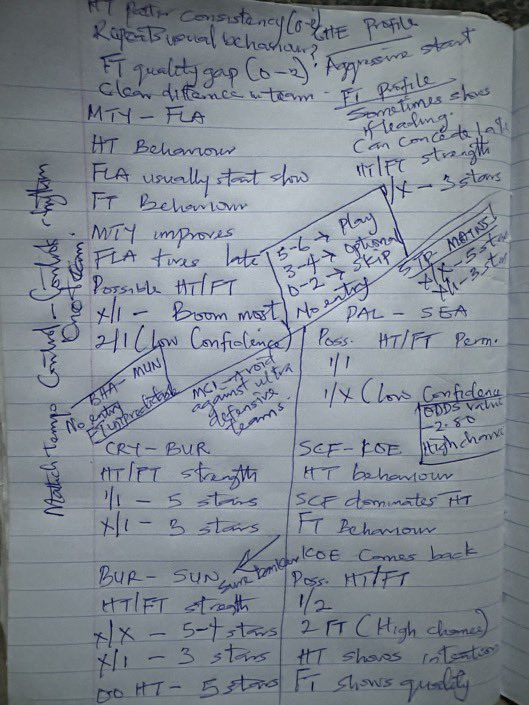 HT pattern consistency (0-2)
Repeats usual behaviour?
FT quality gap (0-2)
Clear difference in team
MTY - FLA
HT Behaviour
FLA usually start slow
FT Behaviour
MTY improves
FLA tires late
Possible HT/FT
X/1 - Bloom most
2/1 (Low Confidence)
CHE Profile
Aggressive start
FT Profile
Sometimes slows
if leading.
Can concede late
HT/FT strength
1/X - 3 stars
5-6 → Play
3-4 → Optional
0-2 → SKIP
No entry
STR - MAINS
X/X - 5 star
X/1 - 3 star
Match Tempo Control - Controls rhythm
One team.
BHA - MUN
No entry
FT unpredictable
MCI - Avoid
against ultra
defensive
teams.
PAL - SEA
Poss. HT/FT Perm.
1/1
1/X (Low Confidence
ODDS value
-2.80
High chance
CRY - BUR
HT/FT strength
1/1 - 5 stars
X/1 - 3 stars
BUR - SUN
HT/FT strength
X/X - 5-4 stars
X/1 - 3 stars
00 HT - 5 stars
SCF - KOE
HT behaviour
SCF dominates HT
FT Behaviour
KOE Comes back
Poss. HT/FT
1/2
2 FT (High chance)
HT shows intention
FT shows quality